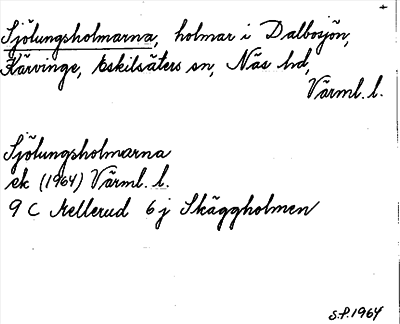 +
Sjölungsholmarna, holmar i Dalbosjön,
Kärvinge, Eskilsäters sn, Näs hd,
Värml. l.
Sjölungsholmarna
ek (1964) Värml. l.
9 C Mellerud 6 j Skäggholmen
S.P. 1964